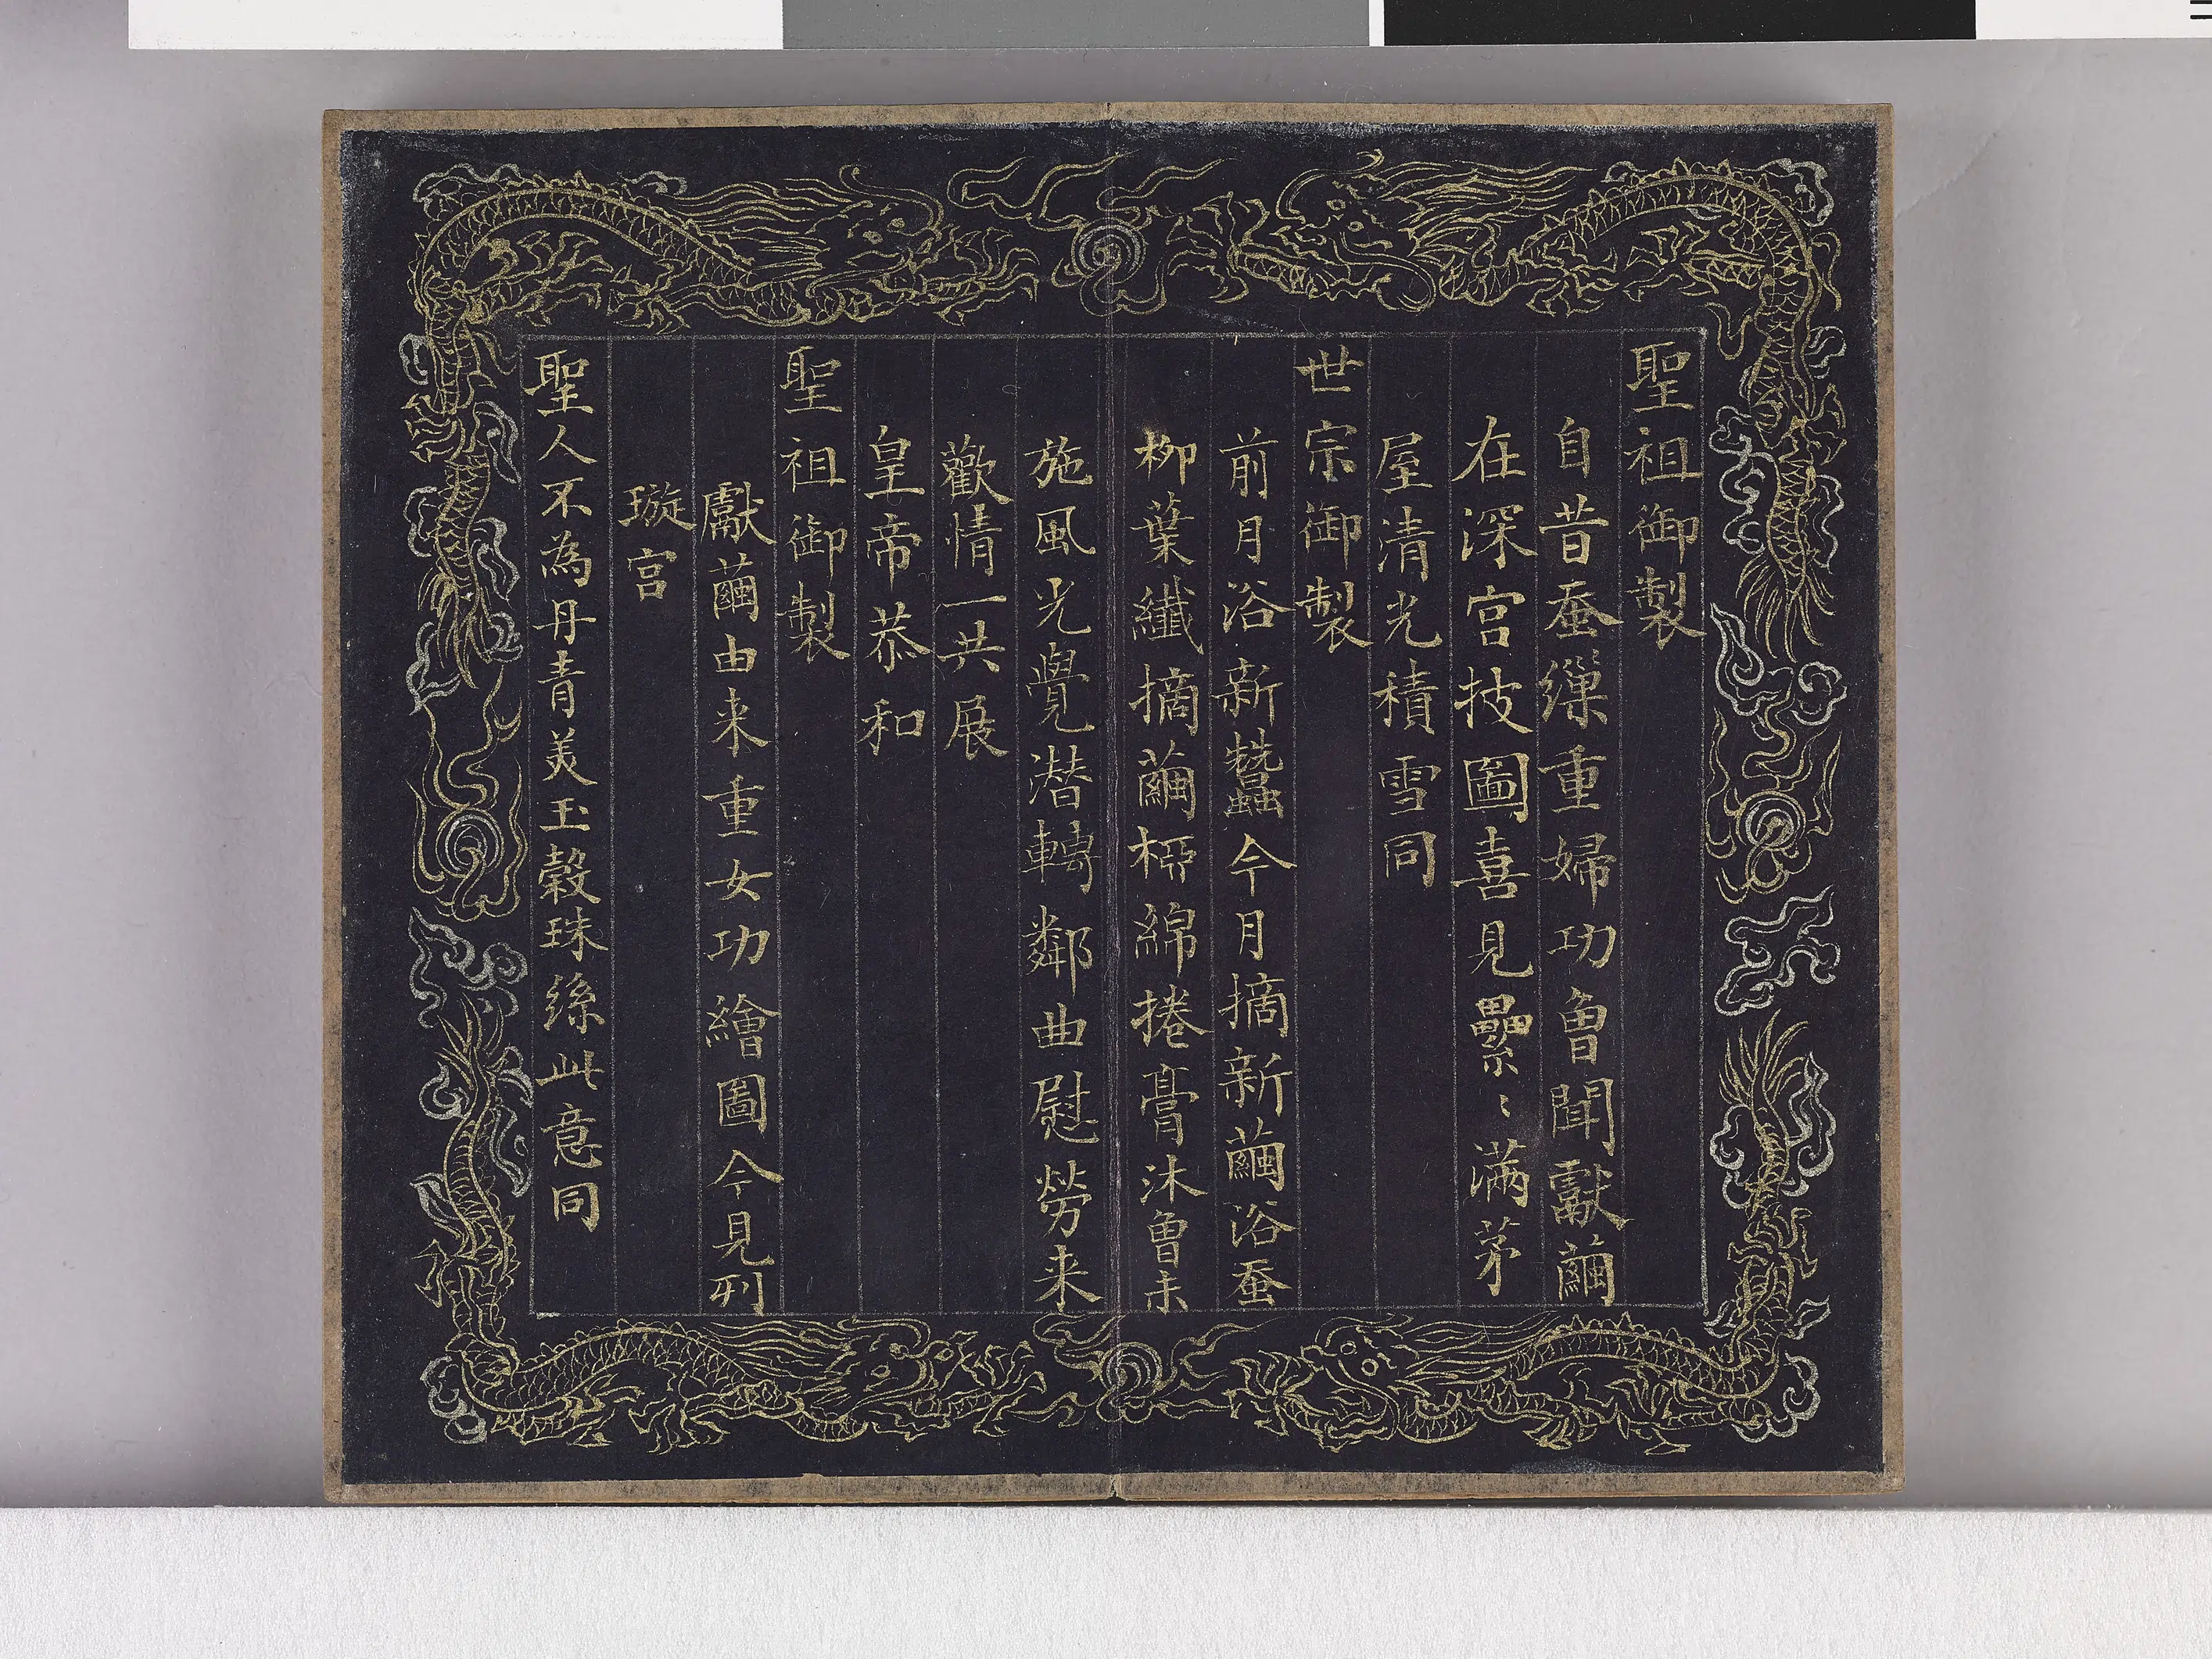 聖祖御製
自昔蚕繅重婦功曾聞獻繭
在深宫技圖喜見纍〻滿茅
屋清光積雪同
世宗御製
前月浴新蠶今月摘新繭浴蚕
柳葉纖摘繭桮綿捲膏沐曾未
施風光覺潜轉鄰曲慰勞来
歡情一共展
皇帝恭和
聖祖御製
獻繭由来重女功繪圖今見列
璇宫
聖人不為丹青美玉穀珠絲此意同